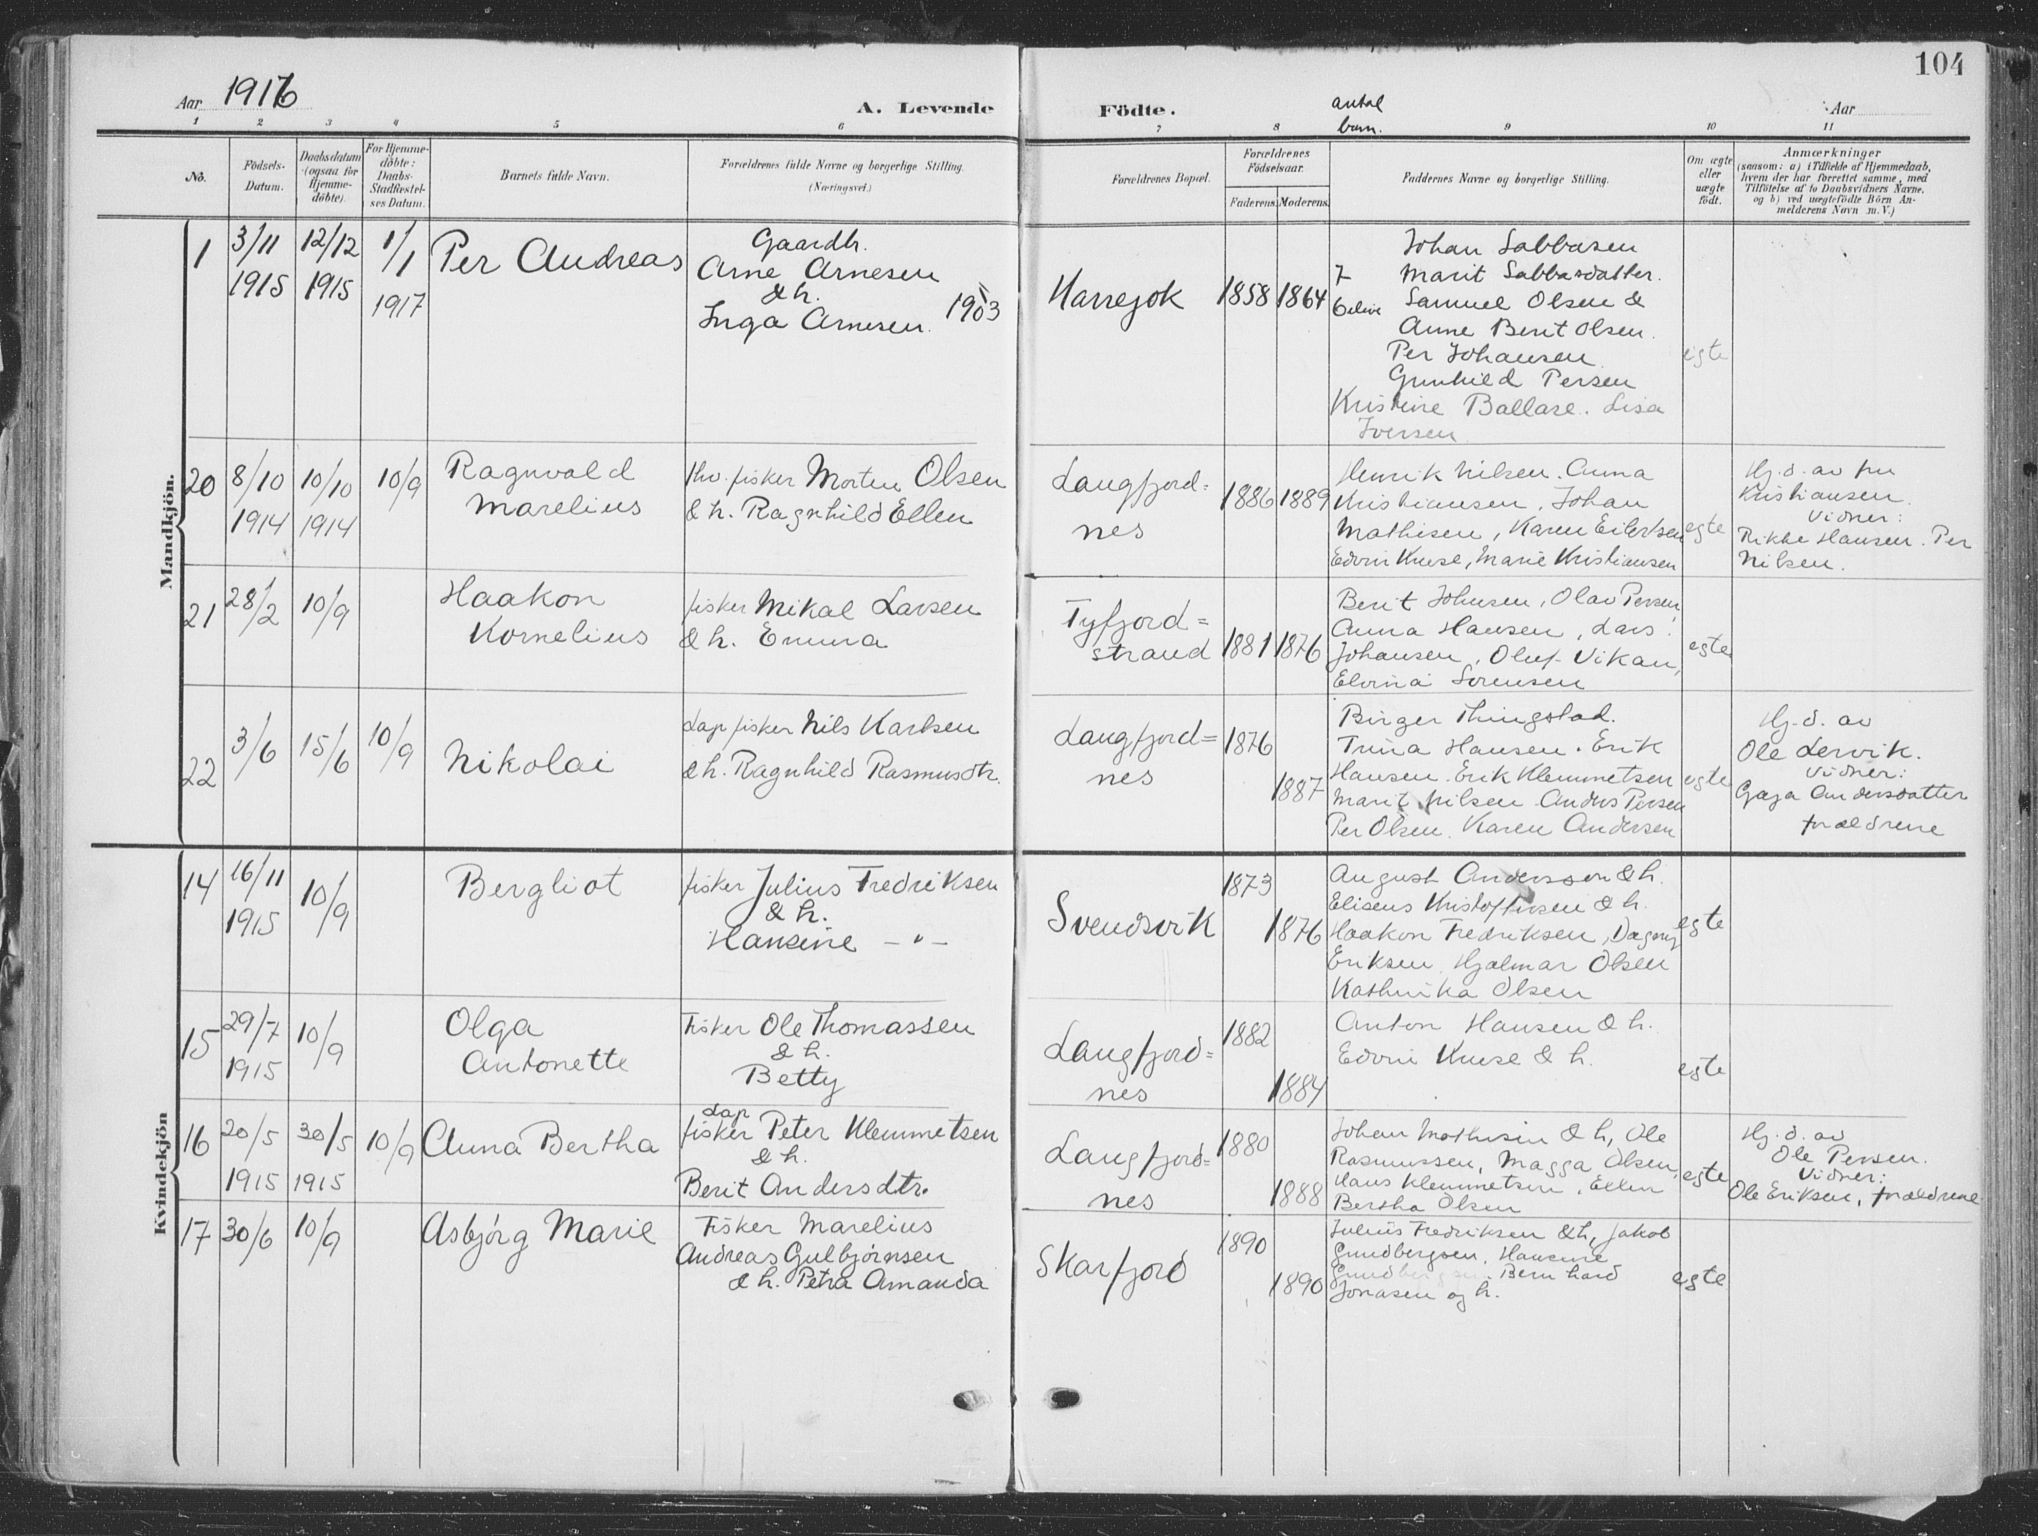 104
Aar 1916
A. Levende Födte.
antal
barn.
Aar
1 2 3 4 5 6 7 8 9 10 11
No.
Födsels-
Datum.
Daabsdatum
(ogsaa for
Hjemme-
döbte).
For Hjemme-
döbte:
Daabs-
Stadfæstel-
ses Datum.
Barnets fulde Navn.
Forældrenes fulde Navne og borgerlige Stilling.
(Næringsvei.)
Forældrenes Bopæl.
Forældrenes
Födselsaar.
Faderens. Moderens.
Faddernes Navne og borgerlige Stilling.
Om ægte
eller
uægte
födt.
Anmærkninger
(saasom: a) i Tilfælde af Hjemmedaab,
hvem der har forrettet samme, med
Tilföielse af to Daabsvidners Navne.
og b) ved uægtefödte Börn An-
melderens Navn m. V.)
Mandkjön.
1
3/11
1915
12/12
1915
1/1
1917
Per Andreas
Gaardb.
Arne Arnesen
& h.
Inga Arnesen. 1903
Harrejok
1858 1864
7
6 elive
Johan Sabbasen
Marit Sabbasdatter.
Samuel Olsen &
Anne Berit Olsen.
Per Johansen
Gunhild Persen
Kristine Ballase. Lisa
Iversen
egte
20
8/10
1914
10/10
1914
10/9
Ragnvald
Marelius
fhv. fisker Morten Olsen
& h. Ragnhild Ellen
Langfjord=
nes
1886 1889
Henrik Nilsen. Anna
Kristiansen, Johan
Mathisen, Karen Eilertsen
Edvin Kruse, Marie Kristiansen
egte
Hj. d. av fru
Kristiansen.
Vidner:
Rikke Hansen. Per
Nilsen.
21
28/2
10/9
Haakon
Kornelius
fisker Mikal Larsen
& h. Emma
Tyfjord=
strand
1881 1876
Berit Johnsen, Olav Persen
Anna Hansen, Lars
Johansen, Oluf Vikan,
Elvina Sørensen
egte
22
3/6
15/6
10/9
Nikolai
Lap fisker Nils Karlsen
& h. Ragnhild Rasmusdtr.
Langfjord=
nes
1876
1887
Birger Thingstad.
Trina Hansen. Erik
Hansen. Erik Klemmetsen
Marit Nilsen. Anders Persen
Per Olsen. Karen Andersen
egte
Hj. d. av
Ole Lervik.
Vidner:
Gaga Andersdatter
forældrene
Kvindekjön
14
16/11
1915
10/9
Bergliot
fisker Julius Fredriksen
& h.
Hansine — " —
Svendsvik
1873
1876
August Anderssen & h.
Eliseus Kristoffersen & h.
Haakon Fredriksen, Dagny
Eriksen. Hjalmar Olsen
Kathrika Olsen
egte
15
29/7
1915
10/9
Olga
Antonette
Fisker Ole Thomassen
& h.
Betty
Langfjord=
nes
1882
1884
Anton Hansen & h.
Edvin Kruse & h.
egte
16
20/5
1915
30/5
1915
10/9
Anna Bertha
Lap
fisker Peter Klemmetsen
& h.
Berit Andersdtr.
Langfjord=
nes
1880
1888
Johan Mathisen & h, Ole
Rasmussen, Magga Olsen,
Hans Klemmetsen, Ellen
Bertha Olsen
egte
Hj. d. av
Ole Persen.
Vidner:
Ole Eriksen, forældrene
17
30/6
10/9
Asbjørg Marie
Fisker Marelius
Andreas Gulbjørnsen
& h. Petra Amanda
Skarfjord
1890
1890
Julius Fredriksen & h, Jakob
Gundbergsen, Hansine
Gundbergsen. Bernhard
Jonasen og h.
egte